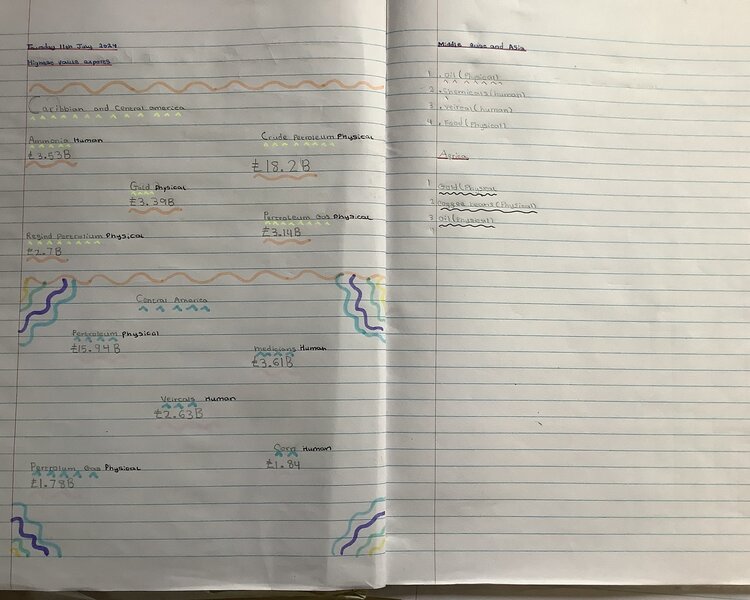 Tuesday 11th July 2024
Highest value exports
Caribbian and Central america
Ammonia Human
£3.53B
Crude Pertroleum Physical
£18.2B
Gold Physical
£3.39B
Pertroleum Gas Physical
£3.14B
Physical
£2.7B
Central America
Pertroleum Physical
£15.94B
medicians Human
£3.61B
Human
£2.63B
Corn Human
£1.84
Gas Physical
£1.78B
Middle and Asia
1. Oil (Physical)
2. Chemicals (human)
3. (human)
4. Food (Physical)
Africa
1 Gold (Physical
2 beans (Physical)
3 Oil (Physical)
4